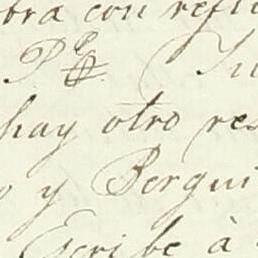 bra con refle
hay otro res
o y Bergui
Escribe à